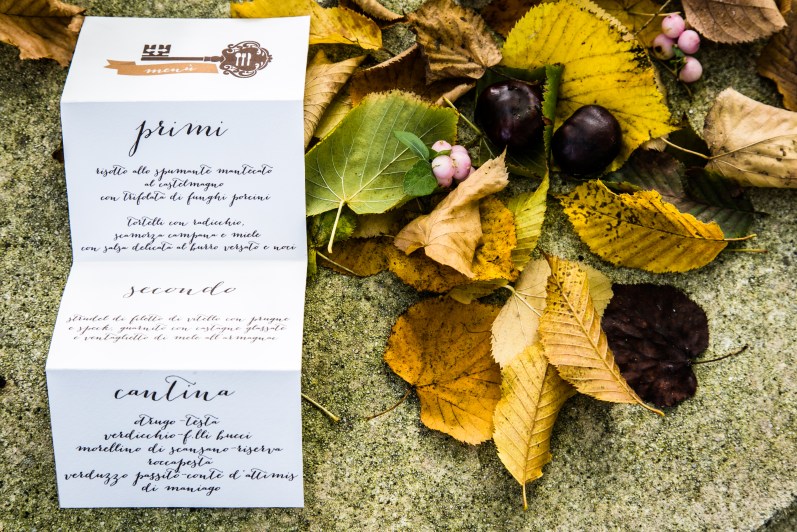 menù
primi
risotto allo spumante mantecato
al castelmagno
con trifolata di funghi porcini
tortelli con radicchio,
scamorza campana e miele
con salsa delicata al burro versato e noci
secondo
strudel di filetto di vitello con prugne
e speck, guarnito con castagne glassate
e ventaglietto di mele all'armagnac
cantina
drugo-testa
verdicchio-f.lli bucci
morellino di scansano-riserva
roccapesta
verduzzo passito-conte d'attimis
di maniago